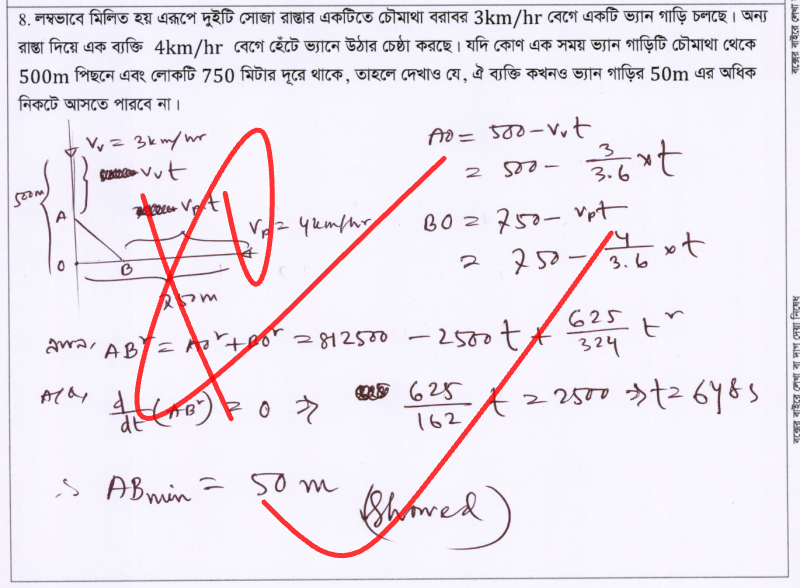 8. লম্বভাবে মিলিত হয় এরূপে দুইটি সোজা রাস্তার একটিতে চৌমাথা বরাবর 3km/hr বেগে একটি ভ্যান গাড়ি চলছে। অন্য
রাস্তা দিয়ে এক ব্যক্তি 4km/hr বেগে হেঁটে ভ্যানে উঠার চেষ্ঠা করছে। যদি কোণ এক সময় ভ্যান গাড়িটি চৌমাথা থেকে
500m পিছনে এবং লোকটি 750 মিটার দূরে থাকে, তাহলে দেখাও যে, ঐ ব্যক্তি কখনও ভ্যান গাড়ির 50m এর অধিক
নিকটে আসতে পারবে না।
V_v = 3km/hr
500m
v_v t
v_p t
V_p = 4km/hr
A
O
B
750m
AO = 500 - v_v t
= 500 - 3/3.6 × t
BO = 750 - v_p t
= 750 - 4/3.6 × t
AB² = AO² + BO² = 812500 - 2500t + 625/324 t²
d/dt (AB²) = 0 ⇒ 625/162 t = 2500 ⇒ t = 648s
∴ AB_min = 50 m (Showed)
বক্সের বাইরে লেখা বা দাগ দেয়া নিষেধ